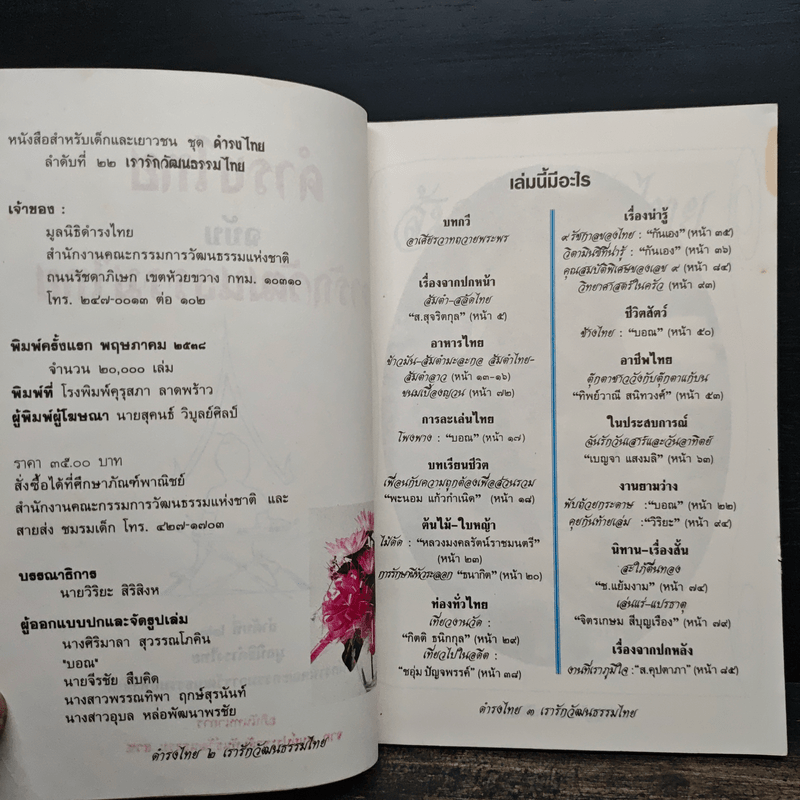 หนังสือสำหรับเด็กและเยาวชน ชุด ดำรงไทย
ลำดับที่ ๒๒ เรารักวัฒนธรรมไทย
เจ้าของ :
มูลนิธิดำรงไทย
สำนักงานคณะกรรมการวัฒนธรรมแห่งชาติ
ถนนรัชดาภิเษก เขตห้วยขวาง กทม. ๑๐๓๑๐
โทร. ๒๔๗-๐๐๑๓ ต่อ ๑๐๒
พิมพ์ครั้งแรก พฤษภาคม ๒๕๓๘
จำนวน ๒๐,๐๐๐ เล่ม
พิมพ์ที่ โรงพิมพ์คุรุสภา ลาดพร้าว
ผู้พิมพ์ผู้โฆษณา นายสุคนธ์ วิบูลย์ศิลป์
ราคา ๓๕.๐๐ บาท
สั่งซื้อได้ที่ศึกษาภัณฑ์พาณิชย์
สำนักงานคณะกรรมการวัฒนธรรมแห่งชาติ และ
สายส่ง ชมรมเด็ก โทร. ๔๒๗-๑๗๐๓
บรรณาธิการ
นายวิริยะ สิริสิงห
ผู้ออกแบบปกและจัดรูปเล่ม
นางศิริมาลา สุวรรณโภคิน
"บอณ"
นายจีรชัย สืบคิด
นางสาวพรรณทิพา ฤกษ์สุรนันท์
นางสาวอุบล หล่อพัฒนาพรชัย
ดำรงไทย ๒ เรารักวัฒนธรรมไทย
เล่มนี้มีอะไร
บทกวี
อาเศียรวาทถวายพระพร
เรื่องจากปกหน้า
ส้มตำ-สลัดไทย
"ส.สุจริตกุล" (หน้า ๕)
อาหารไทย
ข้าวมัน-ส้มตำมะละกอ ส้มตำไทย-
ส้มตำลาว (หน้า ๑๓-๑๖)
ขนมเบื้องญวน (หน้า ๗๒)
การละเล่นไทย
โพงพาง : "บอณ" (หน้า ๑๗)
บทเรียนชีวิต
เพื่อนกับความถูกต้องเพื่อส่วนรวม
"พะนอม แก้วกำเนิด" (หน้า ๑๘)
ต้นไม้-ใบหญ้า
ไม้ดัด : "หลวงมงคลรัตน์ราชมนตรี"
(หน้า ๒๓)
การรักษาผีหัวระลอก "ธนากิต" (หน้า ๒๐)
ท่องทั่วไทย
เที่ยวงานวัด :
"กิตติ ธนิกกุล" (หน้า ๒๙)
เที่ยวไปในอดีต :
"ชอุ่ม ปัญจพรรค์" (หน้า ๓๘)
เรื่องน่ารู้
๙ รัชกาลของไทย : "กันเอง" (หน้า ๓๕)
วิตามินซีที่น่ารู้ : "กันเอง" (หน้า ๓๖)
คุณสมบัติพิเศษของเลข ๙ (หน้า ๘๔)
วิทยาศาสตร์ในครัว (หน้า ๙๓)
ชีวิตสัตว์
ช้างไทย : "บอณ" (หน้า ๕๐)
อาชีพไทย
ตุ๊กตาชาววังกับตุ๊กตาแก้บน
"ทิพย์วาณี สนิทวงศ์" (หน้า ๕๓)
ในประสบการณ์
ฉันรักวันเสาร์และวันอาทิตย์
"เบญจา แสงมลิ" (หน้า ๖๓)
งานยามว่าง
พับถ้วยกระดาษ : "บอณ" (หน้า ๒๒)
คุยกันท้ายเล่ม : "วิริยะ" (หน้า ๙๔)
นิทาน-เรื่องสั้น
สะใภ้ตื่นทอง
"ช.แย้มงาม" (หน้า ๗๔)
เล่นแร่-แปรธาตุ
"จิตรเกษม สีบุญเรือง" (หน้า ๗๙)
เรื่องจากปกหลัง
งานที่เราภูมิใจ : "ส.คุปตาภา" (หน้า ๘๕)
ดำรงไทย ๓ เรารักวัฒนธรรมไทย